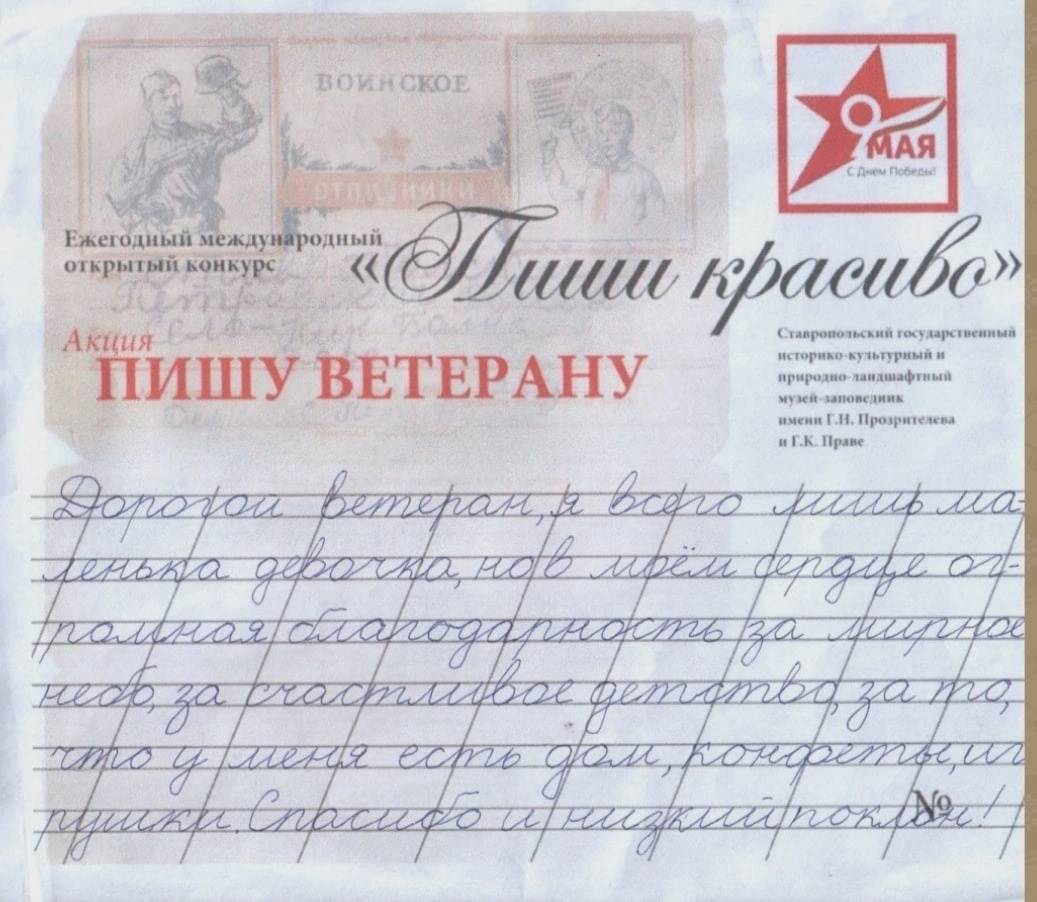 ВОИНСКОЕ
ОТЛИЧНИКИ
9 МАЯ
С Днем Победы!
Ежегодный международный
открытый конкурс
«Пиши красиво»
Акция
ПИШУ ВЕТЕРАНУ
Ставропольский государственный
историко-культурный и
природно-ландшафтный
музей-заповедник
имени Г.Н. Прозрителева
и Г.К. Праве
Дорогой ветеран, я всего лишь ма-
ленька девочка, но в моём сердце ог-
ромная благодарность за мирное
небо, за счастливое детство, за то,
что у меня есть дом, конфеты, иг
рушки. Спасибо и низкий поклон!
№